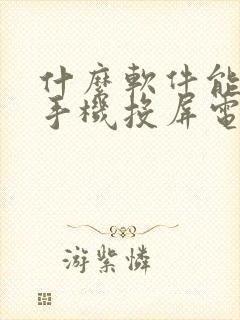 什麼軟件能
手機投屏電
游紫憐